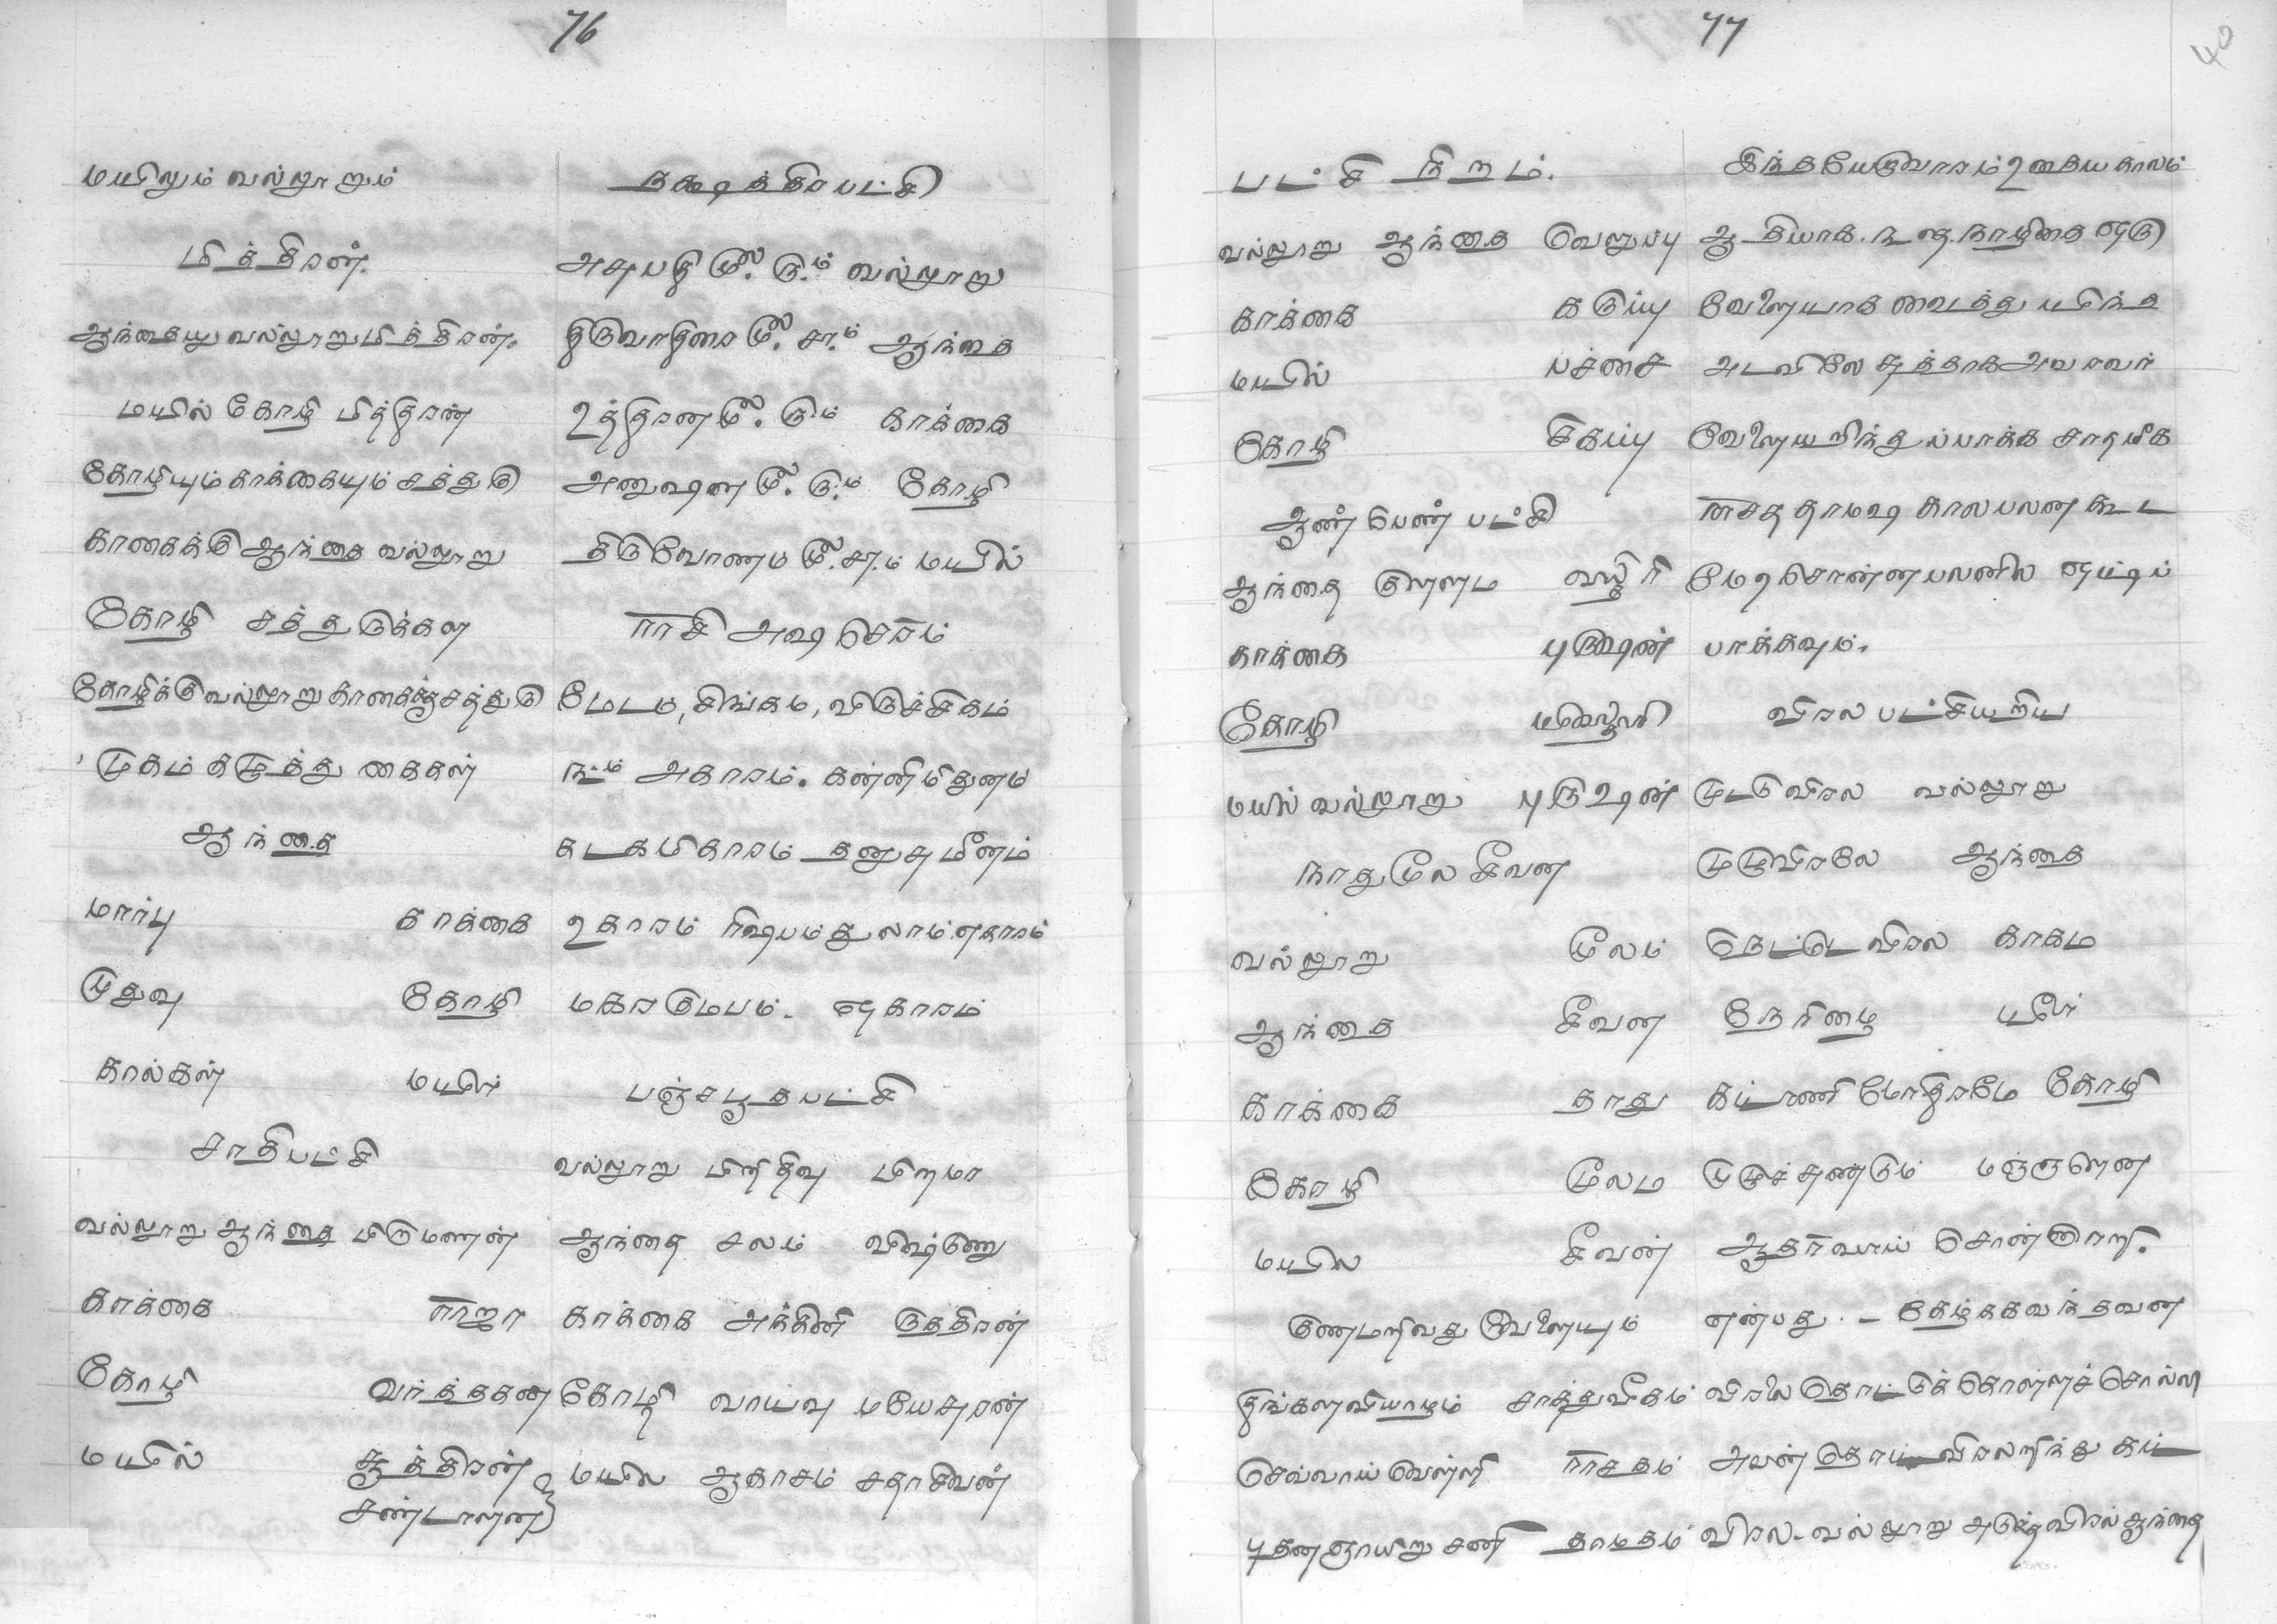 76
மயிலும் வல்லூறும்
மித்திரன்.
ஆந்தையு வல்லூறு மித்திரன்.
மயில் கோழி மித்திரன்
கோழியும் காக்கையும் சத்துரு
காகைக்கு ஆந்தை வல்லூறு
கோழி சத்துருக்கள
கோழிக்கு வல்லூறு காகைக்கு சத்துரு
முகம் கழுத்து கைகள்
ஆந்தை
மார்பு காக்கை
முதுவு கோழி
கால்கள் மயில்
சாதிபட்சி
வல்லூறு ஆந்தை பிருமணன்
காக்கை ராஜா
கோழி வர்த்தகன
மயில் சூத்திரன்
சண்டாளன
நக்ஷத்திர பட்சி
அசுபதி மு. ரு.ம் வல்லூறு
திருவாதிரை மு. சா.ம் ஆந்தை
உத்திரனமு. ரு.ம் காக்கை
அனுஷன மு. ரு.ம் கோழி
திருவோணம மு. சா.ம் மயில்
ராசி அஷசெரம்
மேடம், சிங்கம, விருச்சிகம்
நடம் அகாரம். கன்னிமிதுனம்
கடகமிகாரம் தனுசு மீனம்
உகாரம் ரிஷபம்துலாம்.எகாரம்
மகரகுமபம். ஒகாரம்
பஞ்சபூத பட்சி
வல்லூறு பிறிதிவு பிறமா
ஆந்தை சலம் விஷ்டுணு
காக்கை அக்கினி ருத்திரன்
கோழி வாய்வு மயேசுரன்
மயில ஆகாசம் சதாசிவன்
77
40
பட்சி நிறம்.
வல்லூறு ஆந்தை வெறுப்பு
காக்கை கறுப்பு
மயில் பச்சை
கோழி சிகப்பு
ஆண் பெண் பட்சி
ஆந்தை குளளம
காக்கை புருஷன்
கோழி
மயில் வல்லூறு புருஷன்
நாதுமூல சீவன
வல்லூறு மூலம்
ஆந்தை சீவன
காக்கை தாது
கோழி மூலம
மயில சீவன்
குணமறிவது வேளையும்
திங்கள வியாழம் சாத்துவீகம்
செவ்வாய் வெள்ளி ராசதம்
புதன ஞாயிறு சனி தாமதம்
இந்தயேருவாரம் உதைய காலம்
ஆதியாக. நாழிகை ஒரு
வேளையாக வைத்து யிந்த
அடவிலே சுத்தாக அவரவர்
வேளையறிந்து ப்பாக்க சாதமீக
ராசத தாமஷ காலபலன கூட
மேற சொன்னபலனில ஒட்டிப்
பாக்கவும்.
விரல பட்சியறிய
முட்டுவிரல வல்லூறு
முழுவிரலே ஆந்தை
நெட்டெவிரல காகம
நேரிழை
கப்பாணி மோதிரமே கோழி
மழுச்சுண்டும் மஞ்ஞளென
ஆதரவாய் சொன்னோற்.
என்பது. — கேழ்ககவந்தவன
விரலை தொட்டுக் கொள்ளச்சொல்லி
அவன் தொட்டவிரலறிந்து கட்
விரல-வல்லூறு அடுத்தவிரல் ஆந்தை